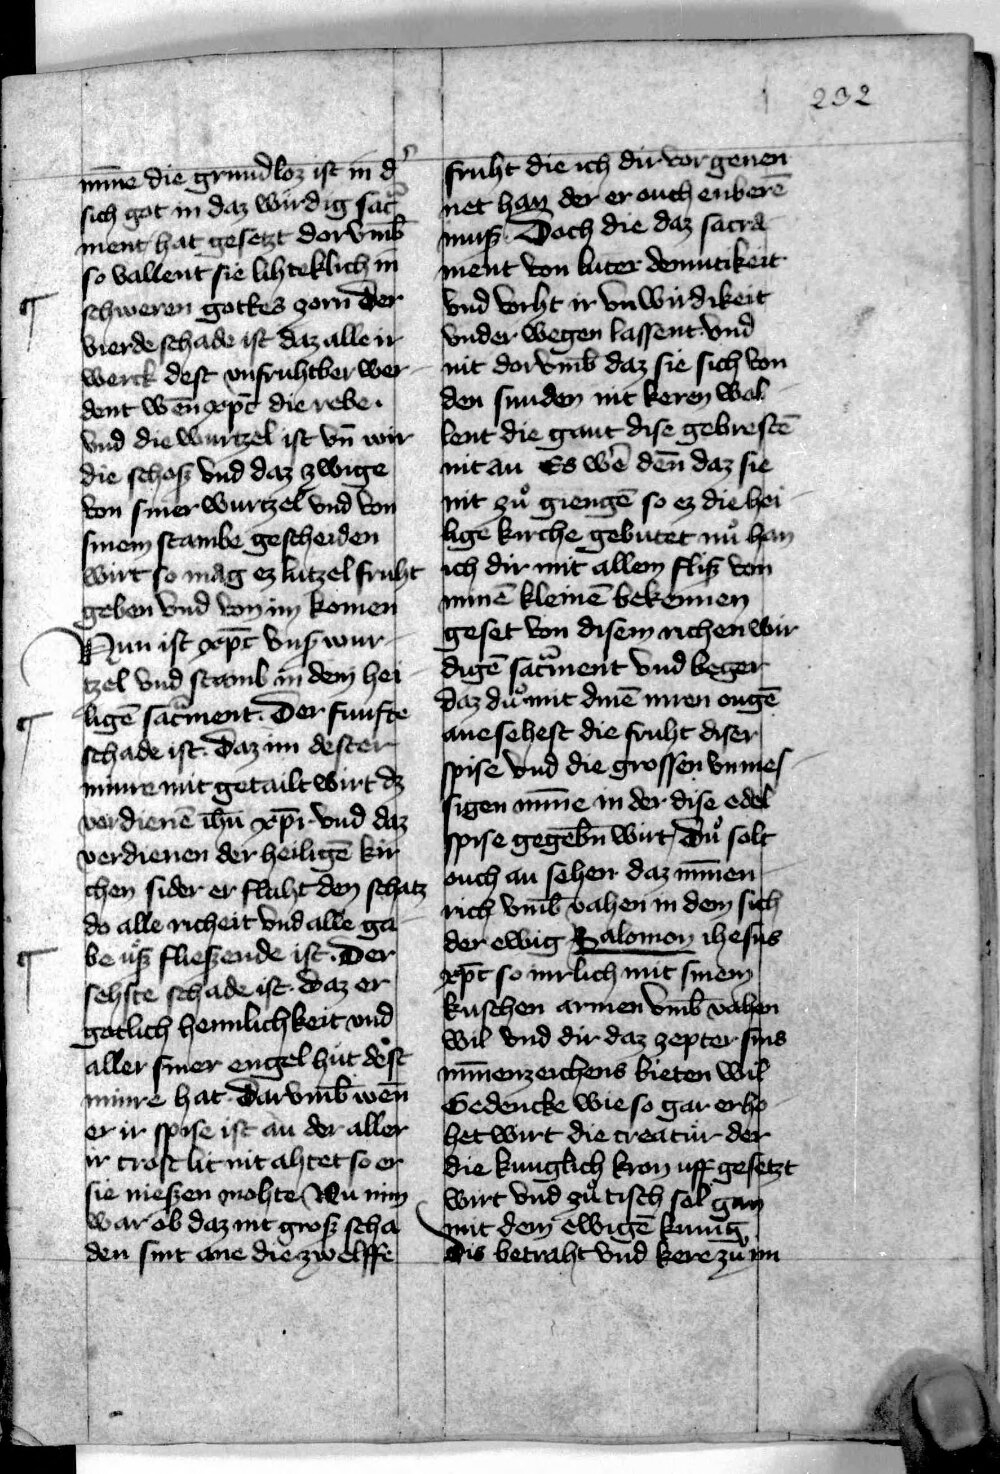 232
mı̄ne die grundloz ist in dˢ
sich got in daz wirdig sacͣ
ment hat gesetzt dorvmb̄
so vallent sie lihteklich in
schweren gottes zorn Der
vierde schade ist daz alle ir
werck dest vnfruhtber wer
dent wēn xp̄c die rebe.
vnd die wurtzel ist vn̄ wir
die schosz vnd daz zwige
von siner wurtzel vnd von
sinem stambe gescheiden
wirt so mag ez lutzel fruht
geben vnd von im komen
Nun ist xp̄c vnsz wur
tzel vnd stamb in dem hei
ligē sacͣment. Der funfte
schade ist. Daz im dester
minre mit getailt wirt dz
verdienē ih̄u xp̄i. vnd daz
verdienen der heiligē kir
chen sider er flúht den schatz
do alle richeit vnd alle ga
be uͦsz flieszende ist. Der
sehste schade ist. Daz er
gotlich heimlichkeit vnd
aller siner engel hút dest
minre hat. Darvmb̄ wēn
er ir spise ist an der aller
ir trost lit nit ahtet so er
sie nieszen mohte Nu nim
war ob daz nit grosz scha
den sint ane die zwelffe
fruht die ich dir vor genen
net han der er ouch enberē
musz. Doch die daz sacra
ment von luter demutikeit
vnd vorht ir vnwirdikeit
vnder wegen lassent. vnd
nit dorvmb̄ daz sie sich von
den sunden nit keren wol
lent die gant dise gebrestē
nit an Es wē dēn daz sie
nit zuͦ giengē so ez die hei
lige kirche gebútet nuͦ han
ich dir mit allem flisz von
minē kleinē bekennen
geset von disem richen wir
digē sacͣment vnd beger
daz duͦ mit dinē inren ougē
ane sehest die fruht diser
spise vnd die grossen vnmes
sigen mı̄ne in der dise edel
spise gegebn̄ wirt / Duͦ solt
ouch an sehen daz mı̄nen
rich vmb̄ vahen in dem sich
der ewig Salomon ihesus
xp̄c so inrlich mit sinem
kuschen armen vmb̄ vahen
wil vnd dir daz zepter sins
mı̄nenzeichens bieten wil
Gedencke wie so gar erho
het wirt die creatúr der
die kunglich kron uff gesetzt
wirt vnd zuͦ tisch sol gan
mit dem ewigē kunig
Dis betraht vnd kere zuͦ im